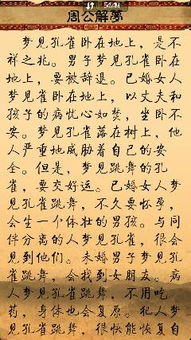 周公解夢
梦见孔雀卧在地上，是不
祥之兆。男子梦见孔雀卧在地
上，要被辞退。已婚女人梦
见孔雀卧在地上，以丈夫和
孩子的病忧心如焚，坐卧不
安。梦见孔雀落在树上，他
人严重地威胁着自己的安
全。但是，梦见跳舞的孔
雀，要交好运。已婚女人梦
见孔雀跳舞，不久要怀孕，
会生一个体壮的男孩。与同
伴分离的人梦见孔雀，很会
见到他们。未婚男子梦见孔
雀跳舞，会找到女朋友。病
人梦见孔雀跳舞，不用吃
药，身体也会复原。犯人梦
见孔雀跳舞，很快能恢复自